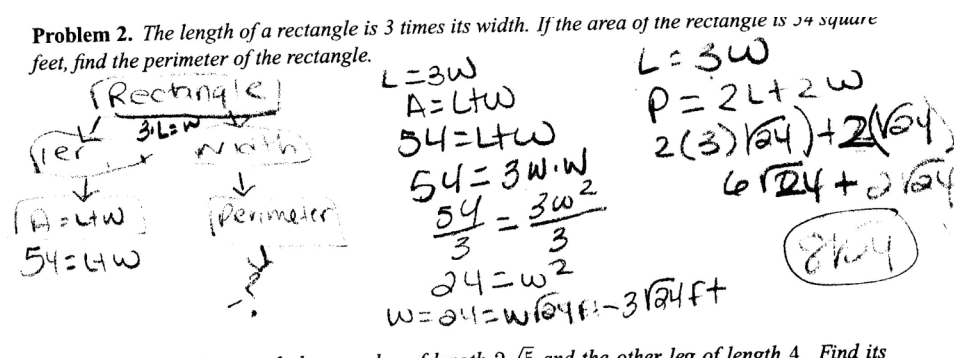 Problem 2. The length of a rectangle is 3 times its width. If the area of the rectangle is 54 square
feet, find the perimeter of the rectangle.
Rectangle
3·L=W
A=L+W
54=L+W
Perimeter
?
L=3W
A=L+W
54=L+W
54=3W·W
54/3 = 3w²/3
24=w²
L=3W
P=2L+2W
2(3)√24)+2(√24)
6√24+2√24
8√24
and the other leg of length 4. Find its